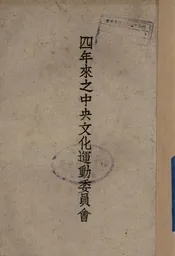 四年來之中央文化運動委員會